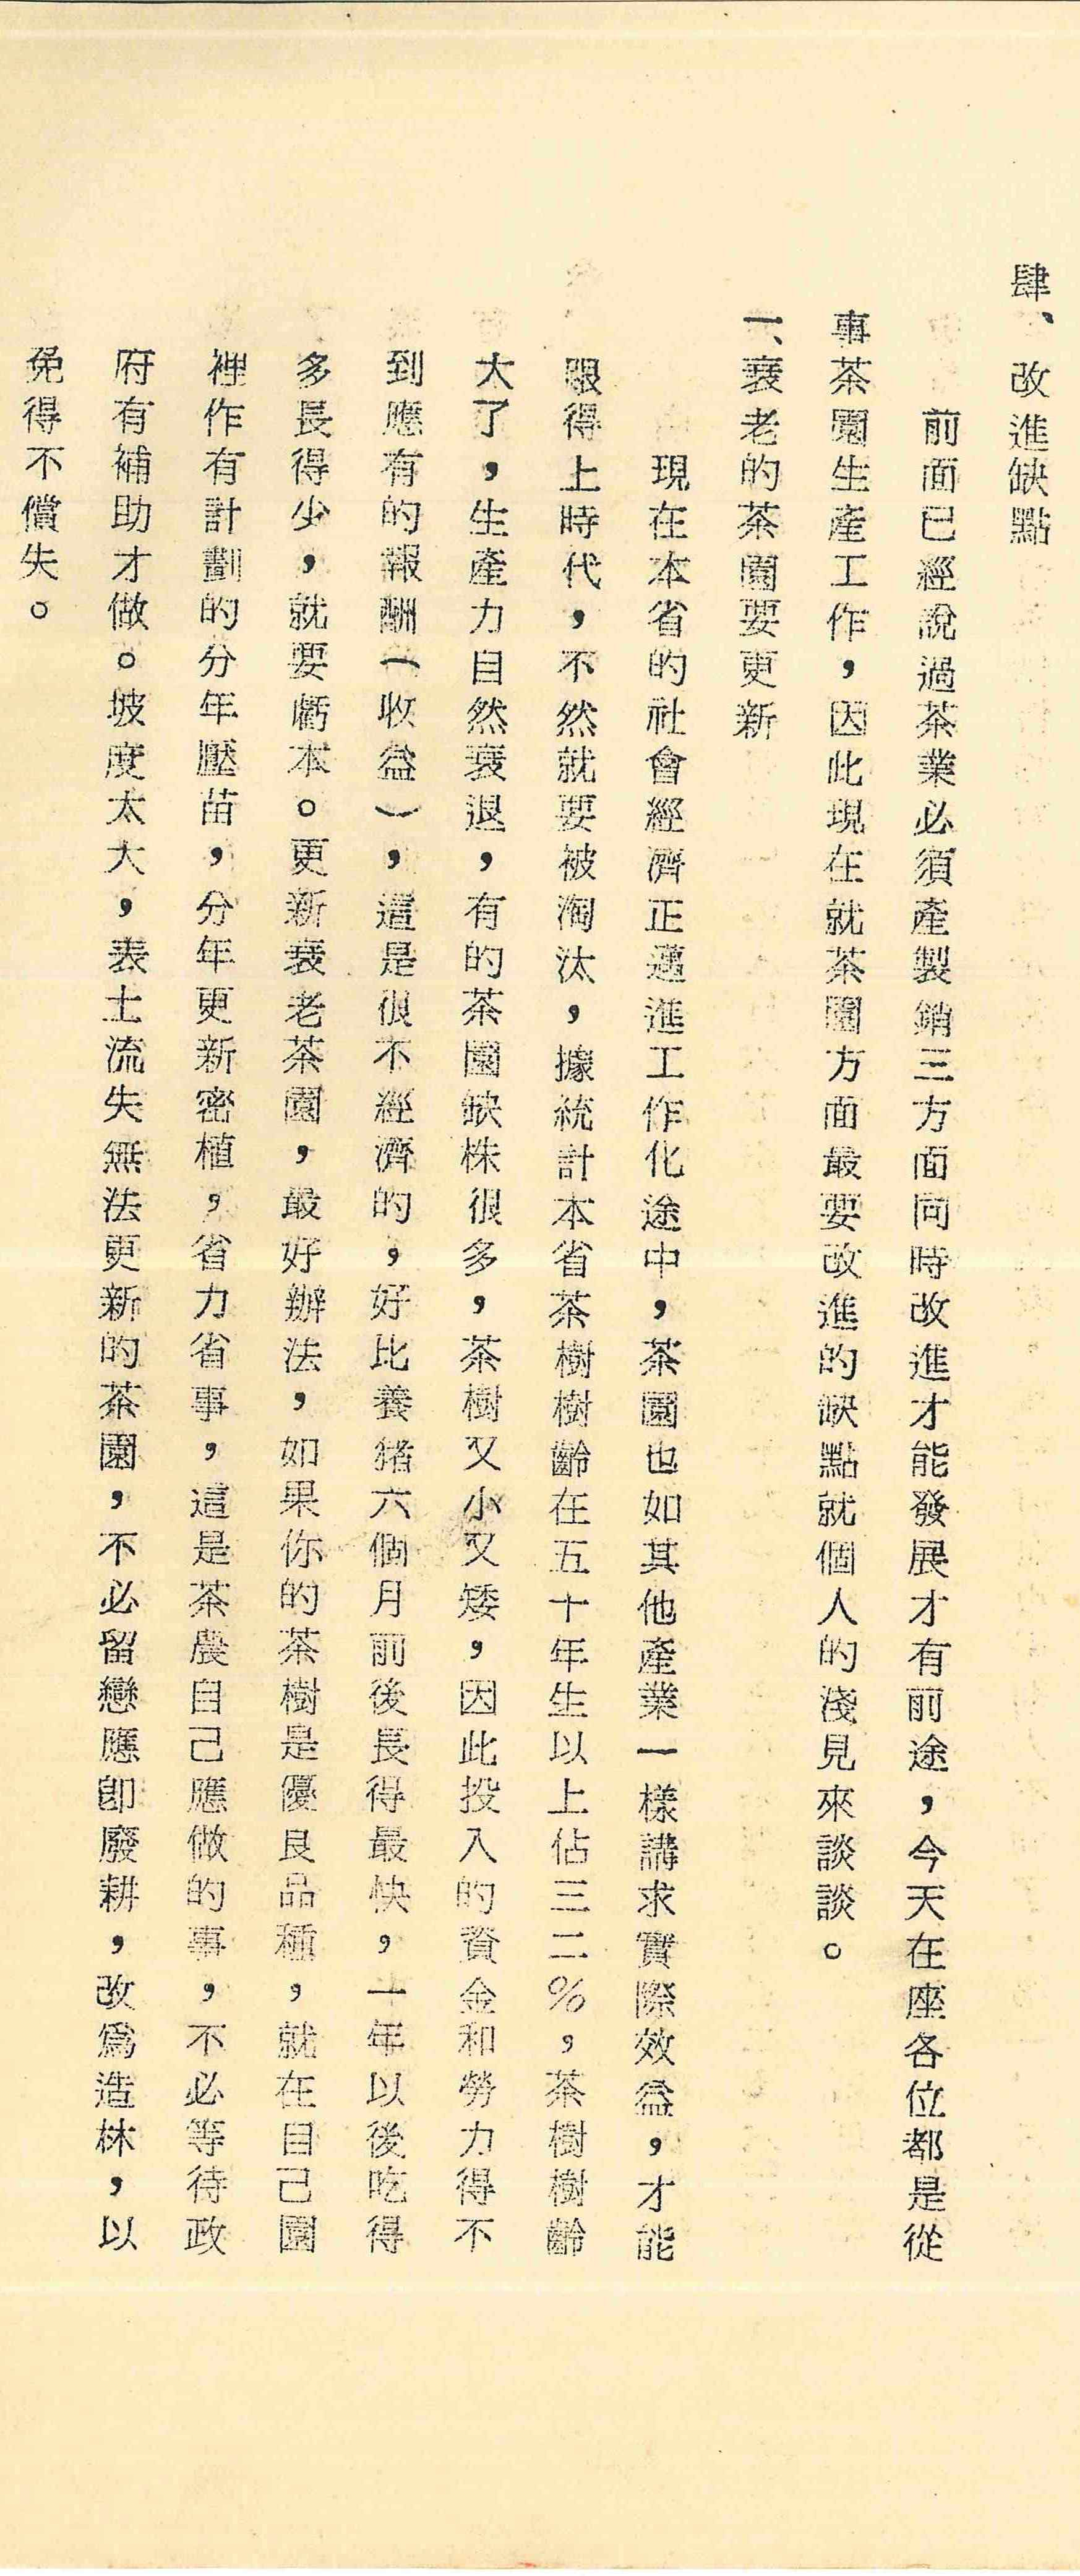 肆、改進缺點
前面已經說過茶業必須產製銷三方面同時改進才能發展才有前途，今天在座各位都是從
事茶園生產工作，因此現在就茶園方面最要改進的缺點就個人的淺見來談談。
一、衰老的茶園要更新
現在本省的社會經濟正邁進工作化途中，茶園也如其他產業一樣講求實際效益，才能
跟得上時代，不然就要被淘汰，據統計本省茶樹樹齡在五十年生以上佔三二％，茶樹樹齡
大了，生產力自然衰退，有的茶園缺株很多，茶樹又小又矮，因此投入的資金和勞力得不
到應有的報酬（收益），這是很不經濟的，好比養猪六個月前後長得最快，一年以後吃得
多長得少，就要虧本。更新衰老茶園，最好辦法，如果你的茶樹是優良品種，就在自己園
裡作有計劃的分年壓苗，分年更新密植，省力省事，這是茶農自己應做的事，不必等待政
府有補助才做。坡度太大，表土流失無法更新的茶園，不必留戀應即廢耕，改為造林，以
免得不償失。